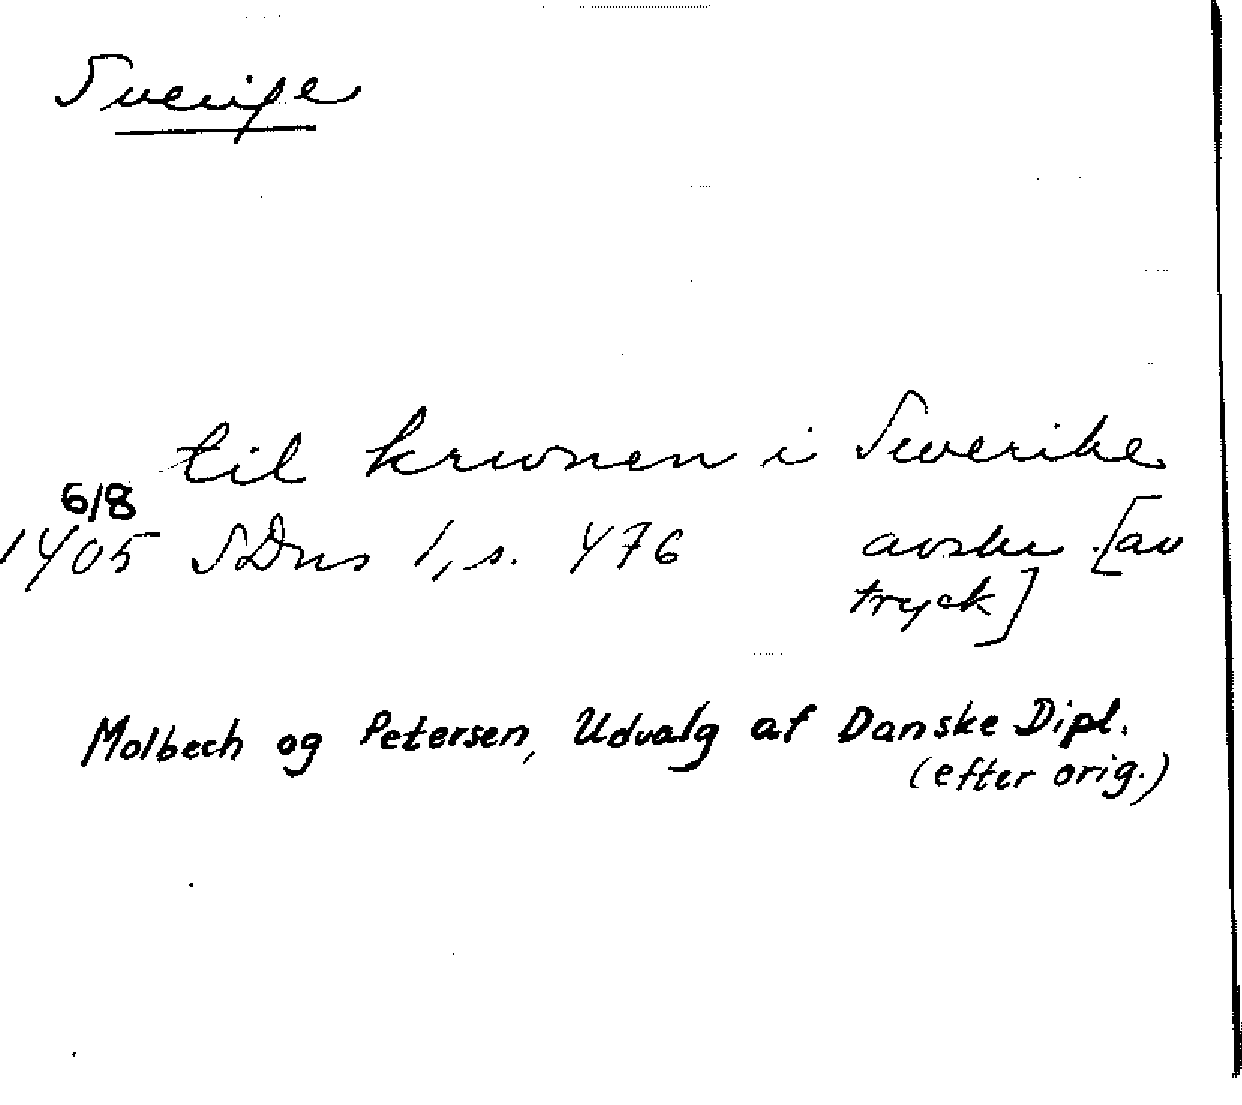 Sverige
til krwnen i Swerike
6/8
1405 SDns 1, s. 476 avskr. [av
tryck]
Molbech og Petersen, Udvalg af Danske Dipl.
(efter orig.)